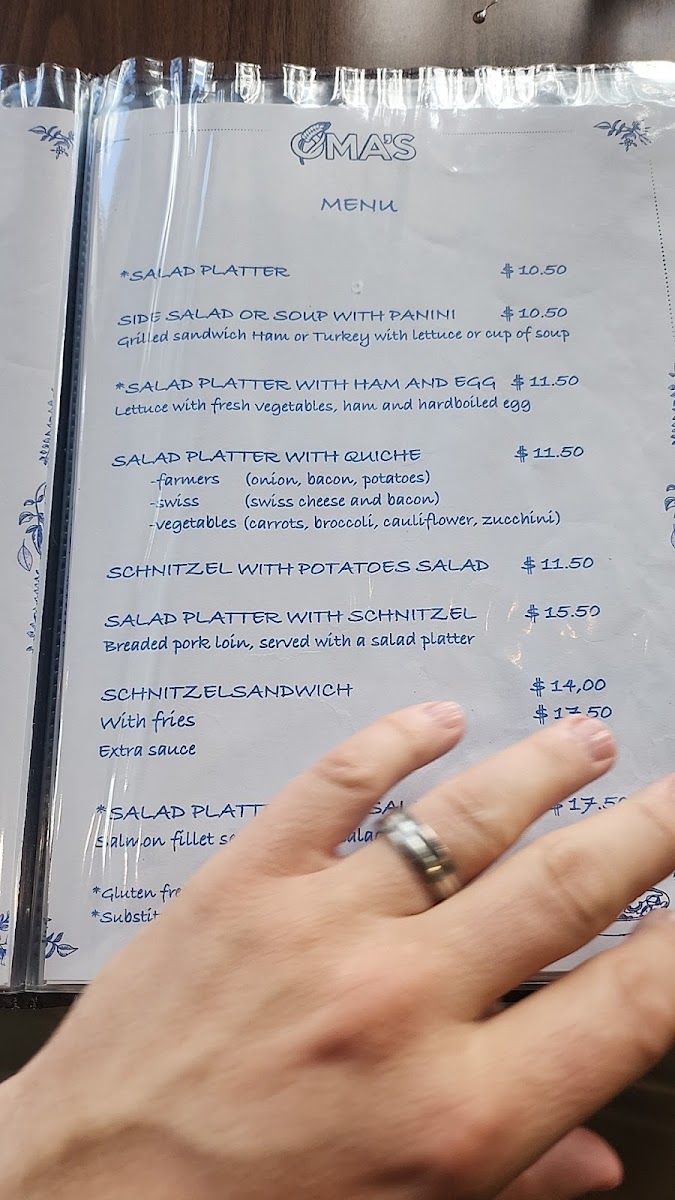 OMA'S
MENU
*SALAD PLATTER $10.50
SIDE SALAD OR SOUP WITH PANINI $10.50
Grilled sandwich Ham or Turkey with lettuce or cup of soup
*SALAD PLATTER WITH HAM AND EGG $11.50
Lettuce with fresh vegetables, ham and hardboiled egg
SALAD PLATTER WITH QUICHE $11.50
-farmers (onion, bacon, potatoes)
-swiss (swiss cheese and bacon)
-vegetables (carrots, broccoli, cauliflower, zucchini)
SCHNITZEL WITH POTATOES SALAD $11.50
SALAD PLATTER WITH SCHNITZEL $15.50
Breaded pork loin, served with a salad platter
SCHNITZELSANDWICH $14,00
With fries $17.50
Extra sauce
*SALAD $17.50
Salmon fillet
*Gluten